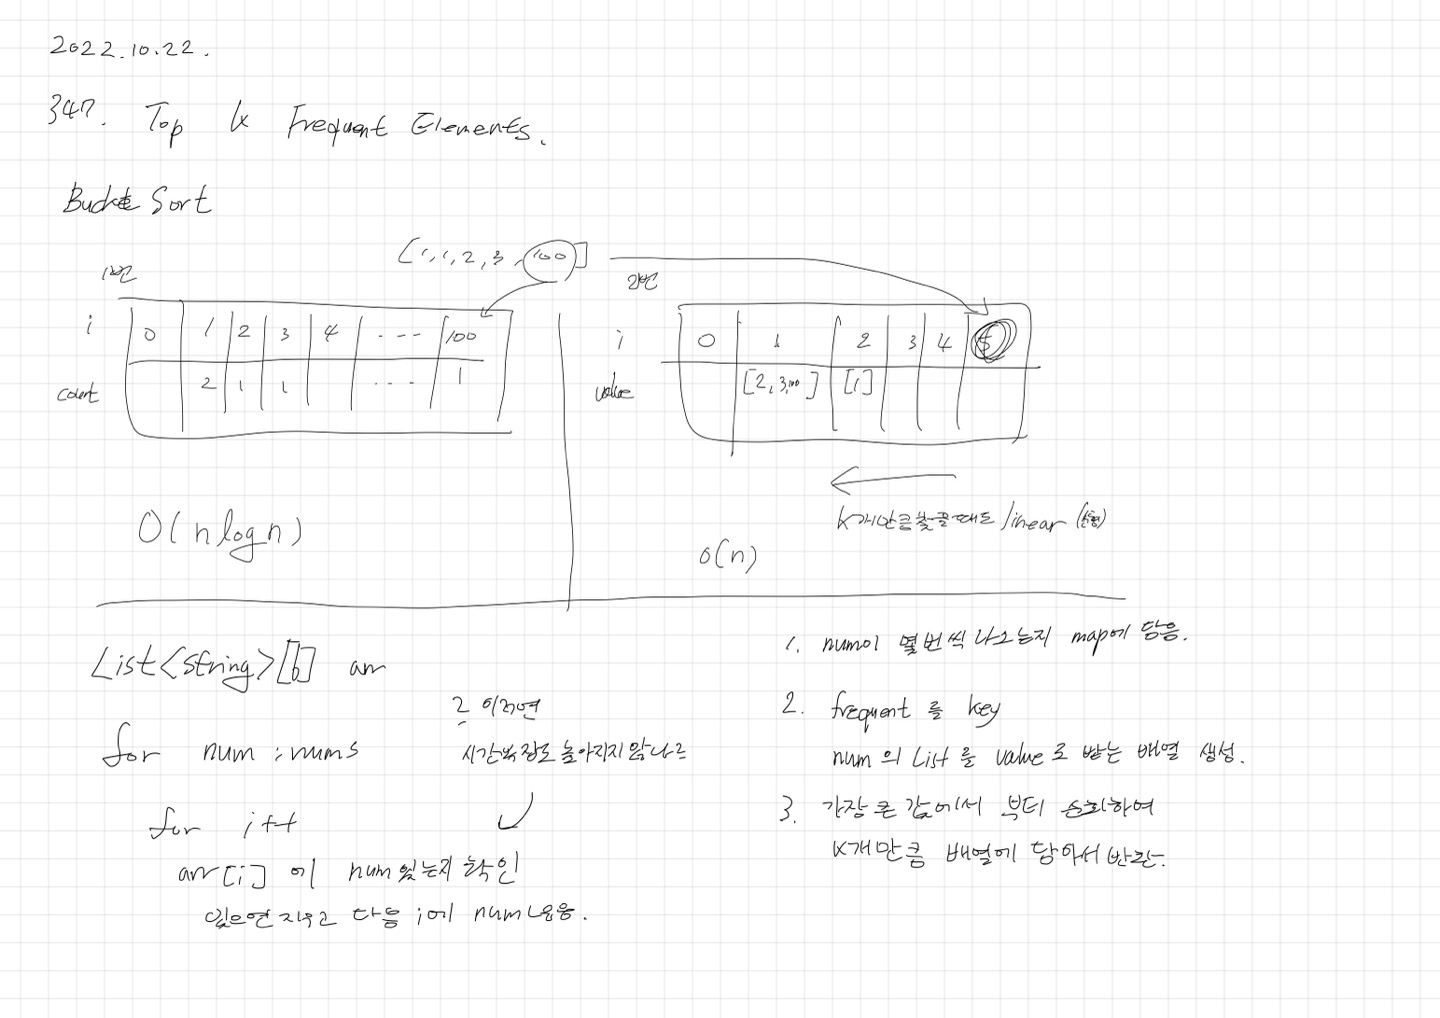 2022.10.22.
347. Top K Frequent Elements.
Bucket Sort
[1,1,2,3,100]
1번
i 0 1 2 3 4 ---- 100
count 2 1 1 ---- 1
O(nlogn)
2번
i 0 1 2 3 4 5
value [2,3,100] [1]
K개만큼 찾을때도 linear (선형)
O(n)
List<string>[6] arr
for num : nums
for i++
arr[i] 에 num있는지 확인
있으면 지우고 다음 i에 num 넣음.
2 이러면
시간복잡도 높아지지 않나?
1. num이 몇번씩 나오는지 map에 담음.
2. frequent 를 key
num 의 List 를 value로 받는 배열 생성.
3. 가장 큰 값에서 부터 순회하여
K개만큼 배열에 담아서 반환.